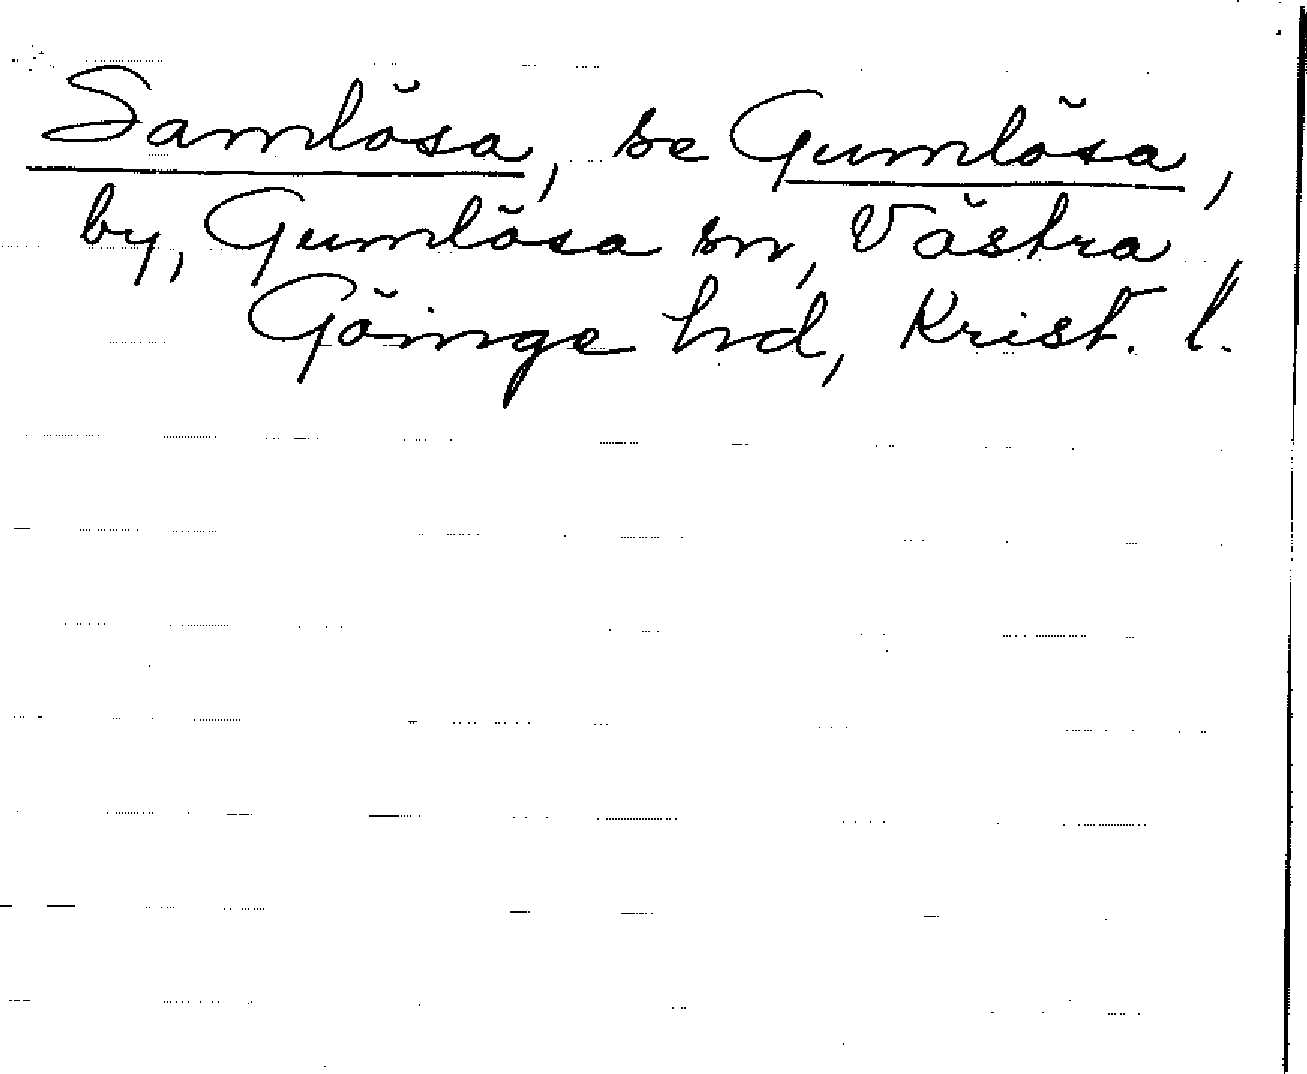 Samlösa, se Gumlösa,
by, Gumlösa sn, Västra
Göinge hd, Krist. l.